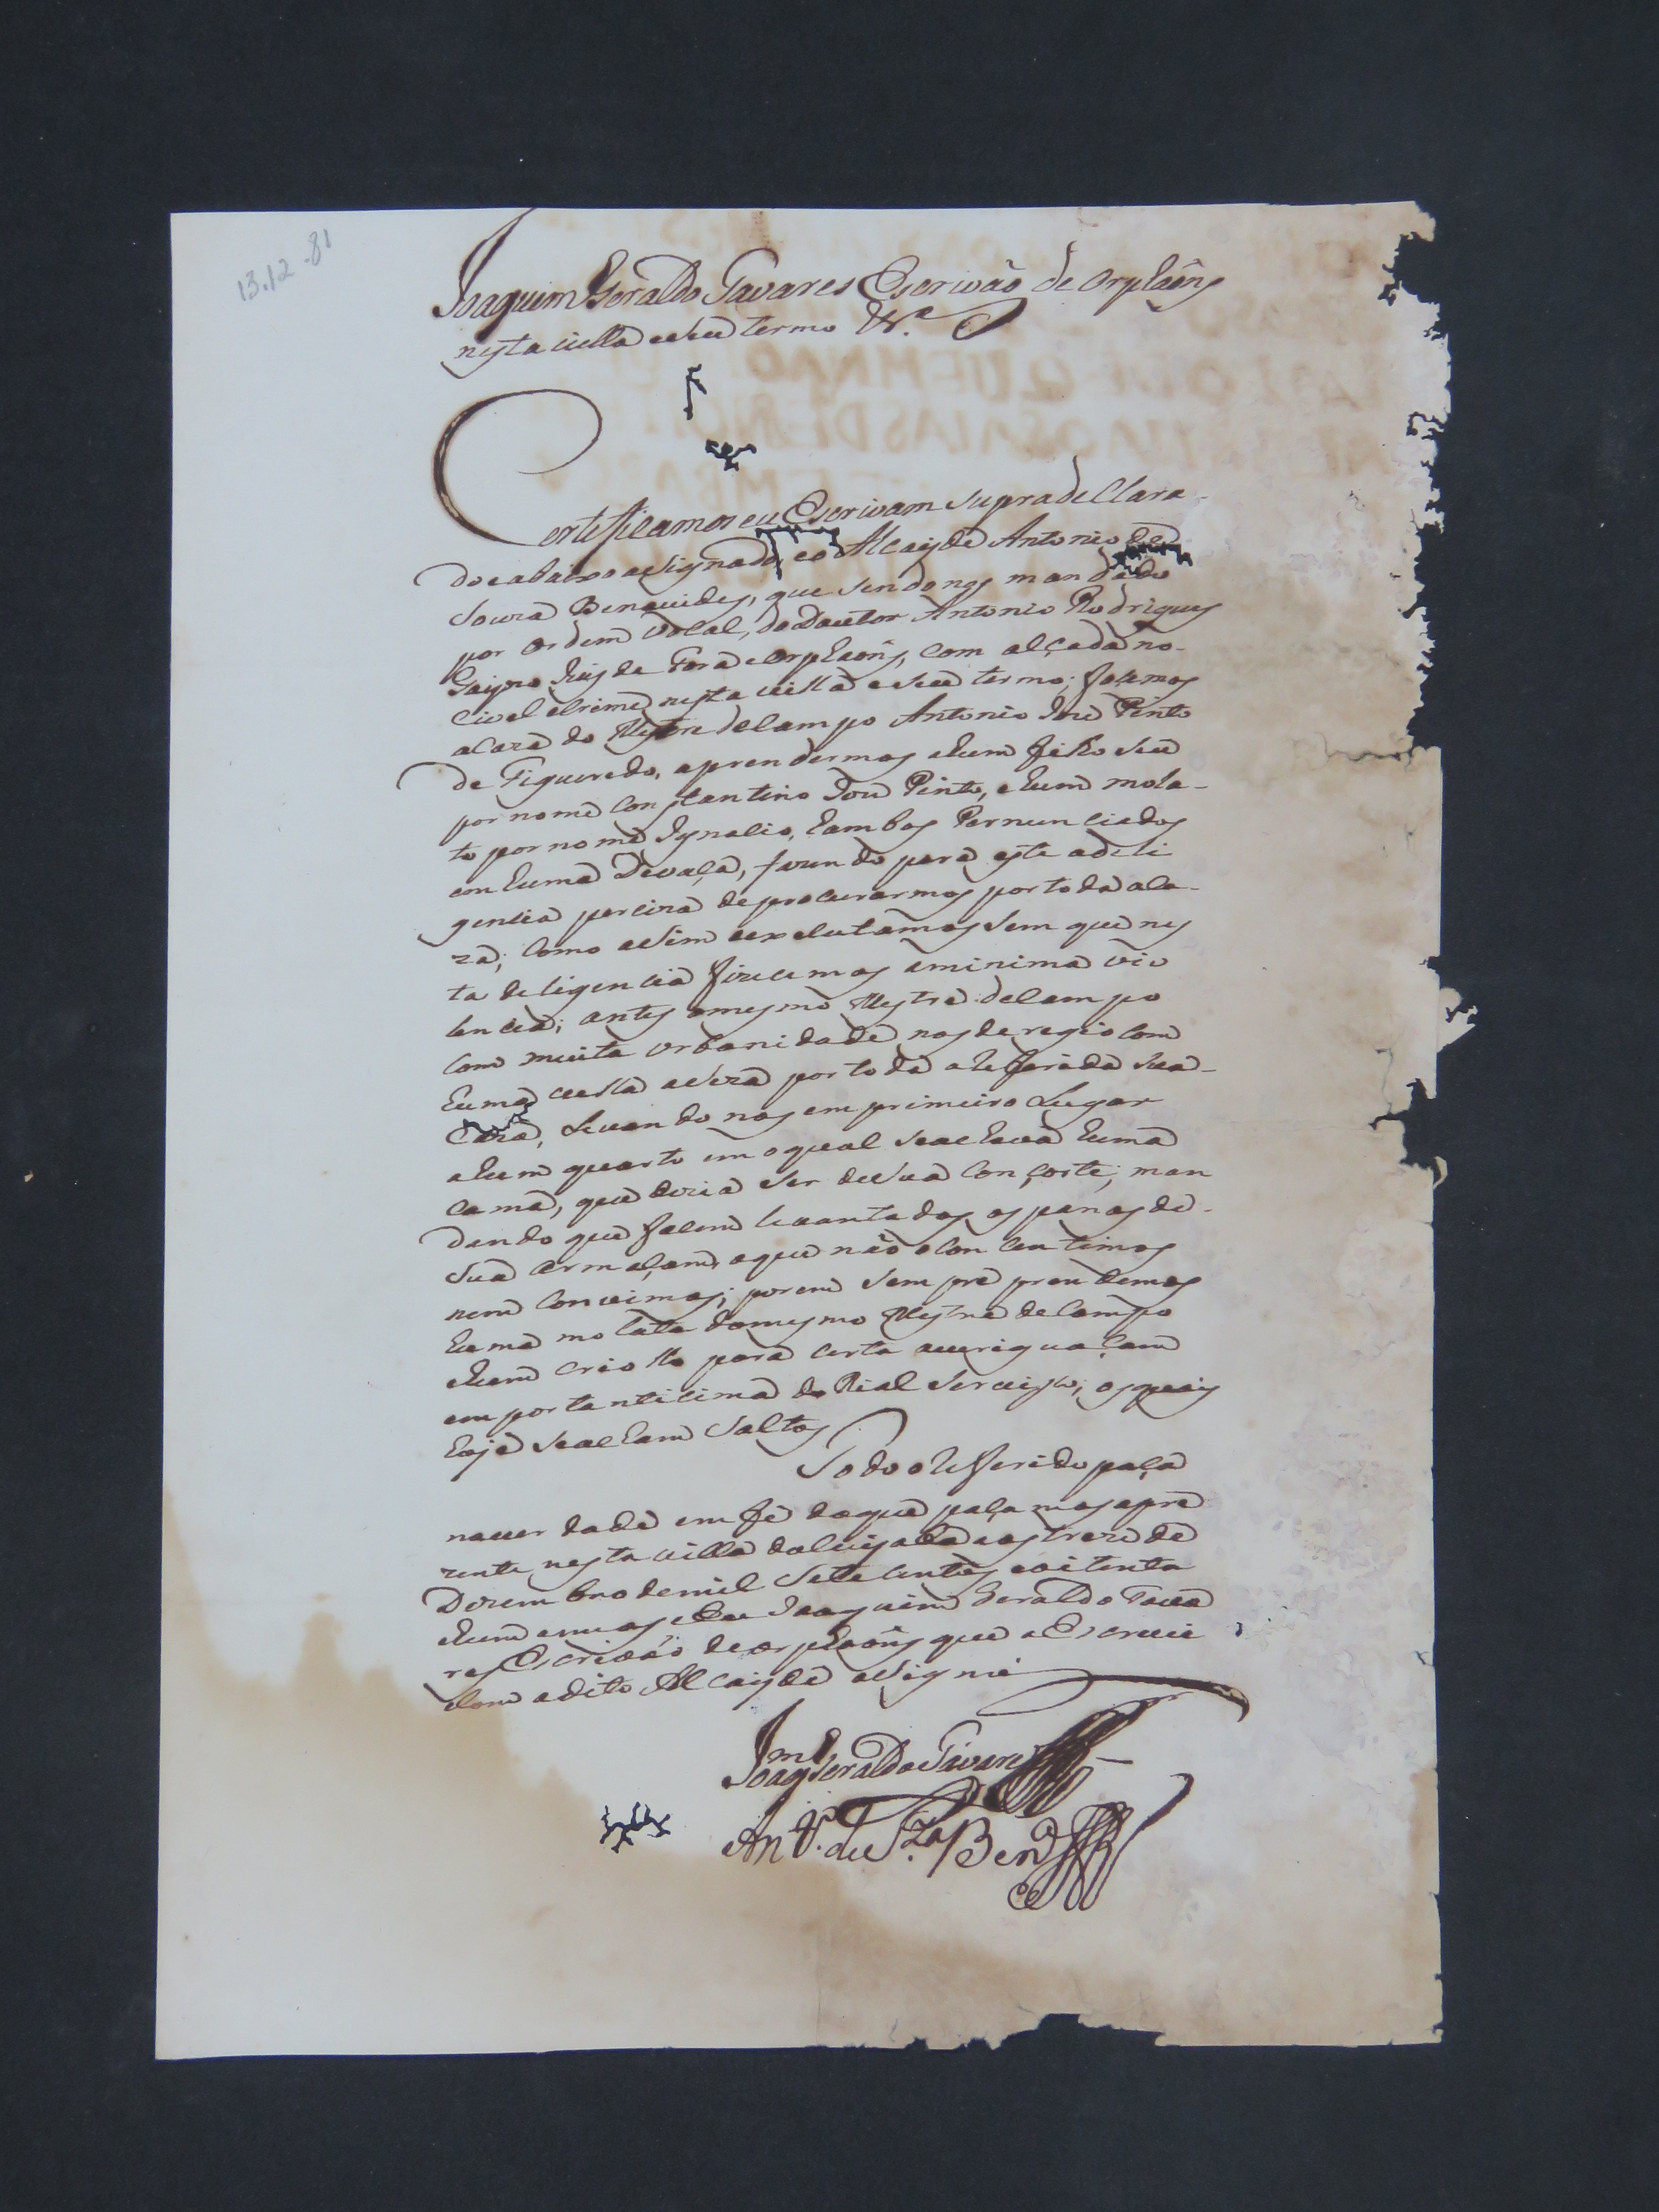 13.12.81
Joaquim Geraldo Tavares Escrivão de orphaõns
nesta villa e seu termo &.ª
Certeficamos eu Escrivam supra declara-
do e abaixo asignado, e o Alcayde Antonio de
Souza Benavides, que sendo nos mandado
por ordem vocal, do Doutor Antonio Rodrigues
Gayozo Juis de Fora e orphaons, com alçada no
civel e crime nesta villa e seu termo; foçemos
a caza do Mestre de Campo Antonio Joze Pinto
de Figueredo, a prendermos a hum filho seu
por nome Constantino Joze Pinto, e hum mola-
to por nome Ignacio, hambos Pernunciados
em huma Devaça, sendo para esta a deli
gencia perciza de procurarmos por toda a ca-
za; como asim a execlutamos sem que nes
ta deligencia fizecemos a minima vio
lencia; antes o mesmo Mestre de Campo
com muita orbanidade nos deregio com
huma vella aceza por toda a refferida sua
Caza, Levando nos em primeiro Lugar
a hum quarto em o qual se achava huma
cama, que dezia ser de sua conçorte; man
dando que focem levantados os panos de
sua armaçam, o que não o con centimos
nem convimos; porem sempre prendemos
huma molata do mesmo Mestre de Campo
e hum criollo para certa averiguaçam
emportanticima do Rial serviço; os quais
hoje se acham Saltos
Todo o refferido paça
na verdade em fé do que paçamos a pre
zente nesta villa do Cuyabá aos treze de
Dezembro de mil sete centos e oitenta
e hum annos e Eu Joaquim Geraldo Tava
res Escrivão de orphaons que a Escrevi
e com a dito Alcayde asigney
Joaq.m Geraldo Tavares
Ant.º de S.za Ben.des